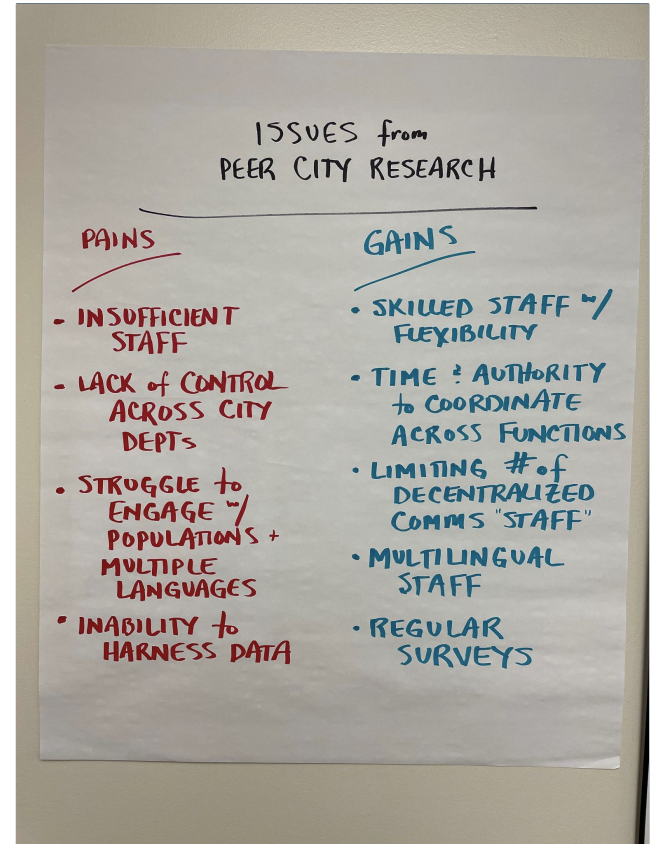 ISSUES from
PEER CITY RESEARCH
PAINS
- INSUFFICIENT
STAFF
- LACK of CONTROL
ACROSS CITY
DEPTs
• STRUGGLE to
ENGAGE w/
POPULATIONS +
MULTIPLE
LANGUAGES
• INABILITY to
HARNESS DATA
GAINS
• SKILLED STAFF w/
FLEXIBILITY
• TIME & AUTHORITY
to COORDINATE
ACROSS FUNCTIONS
• LIMITING # of
DECENTRALIZED
COMMS "STAFF"
• MULTILINGUAL
STAFF
• REGULAR
SURVEYS